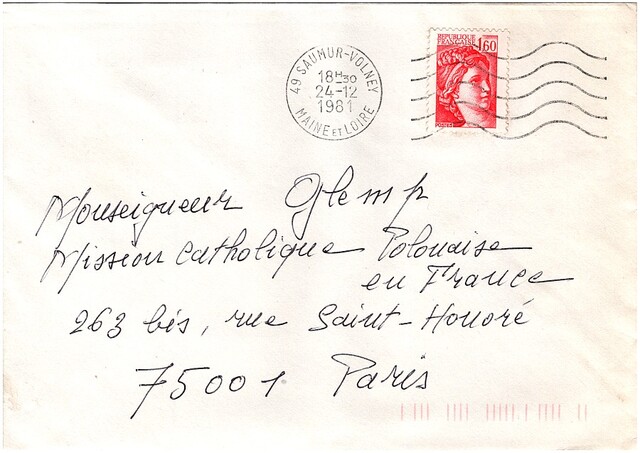 49 SAUMUR-VOLNEY
18H30
24-12
1981
MAINE ET LOIRE
REPUBLIQUE
FRANCAISE 1,60
Monseigneur Glemp
Mission Catholique Polonaise
en France
263 bis, rue Saint-Honoré
75001 Paris